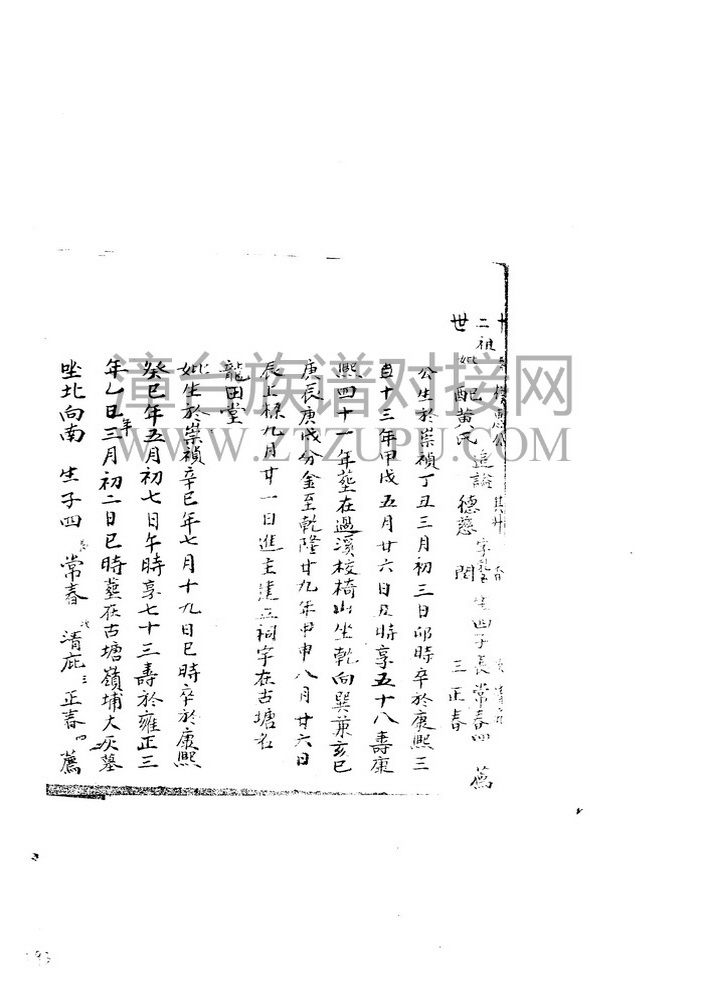 十二世
祖
妣配黃氏 追諡 德慈 閏 三正春
生四子長常春四 薦
公生於崇禎丁丑三月初三日卯時卒於康熙三
十三年甲戌五月廿六日 時享五十八壽康
熙四十一年塟在過溪校椅山坐乾向巽兼亥巳
庚辰庚戌分金至乾隆廿九年甲申八月廿六日
辰上樑九月廿一日進主建立祠宇在古塘名
龍田堂
妣生於崇禎辛巳年七月十九日巳時卒於康熙
癸巳年五月初七日午時享七十三壽於雍正三
年乙巳年三月初二日巳時塟在古塘嶺埔大灰墓
坐北向南 生子四 長常春 次清庇 三正春 四薦
漳台族谱对接网
WWW.ZTZUPU.COM